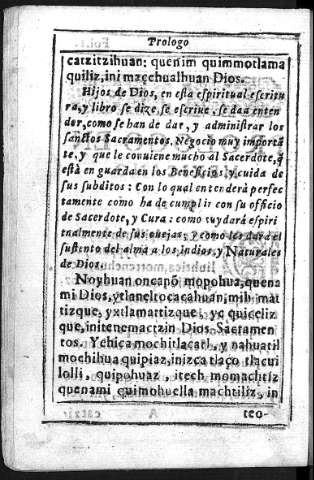 Prologo
catzitzihuan: quenim quimmotlama
quiliz, ini maçehualhuan Dios.
Hijos de Dios, en esta espiritual escritu
ra, y libro se dize, se escriue, se da a enten
der, como se han de dar, y administrar los
sanctos Sacramentos. Negocio muy importã
te, y que le conuiene mucho al Sacerdote, q̃
està en guarda en los Beneficios, y cuida de
sus subditos: Con lo qual entenderà perfec
tamente como ha de cumplir con su officio
de Sacerdote, y Cura: como cuydarà espiri
tualmente de sus ouejas, y como les darà el
sustento del alma a los Indios, y Naturales
de Dios.
Noyhuan oncapõ mopohua, quena
mi Dios, ytlaneltocacahuan, mih mat
tizque, yxtlamattizque, yc quiceliz
que, initenemactzin Dios Sacramen
tos. Y chica mochitlacatl, y nahuatil
mochihua quipiaz, inizca tlaço tlacui
lolli, quipohuaz, itech momachtiz
quenami quimohuella machtiliz, in
teo-